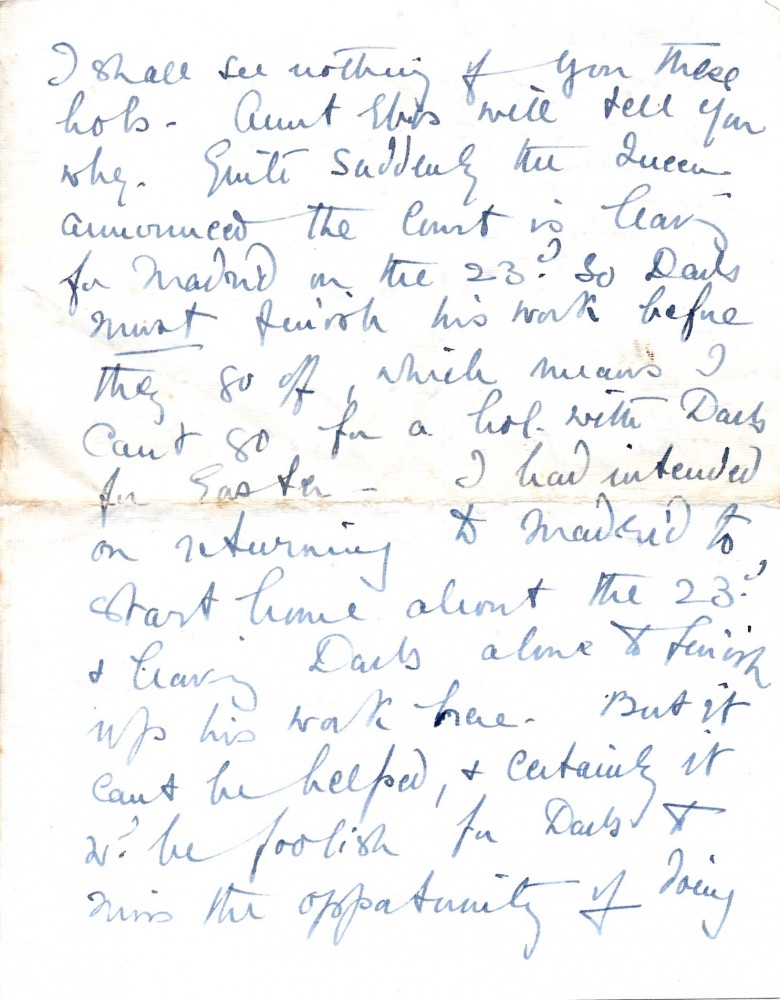 I shall see nothing of you these
hols - Aunt Ebis will tell you
why. Quite suddenly the Queen
announced the Court is leaving
for Madrid on the 23rd. So Dads
must finish his work before
they go off, which means I
can't go for a hol. with Dads
for Easter - I had intended
on returning to Madrid to
start home about the 23rd
& leaving Dads alone to finish
up his work here - But it
can't be helped, & certainly it
wd. be foolish for Dads to
miss the opportunity of doing